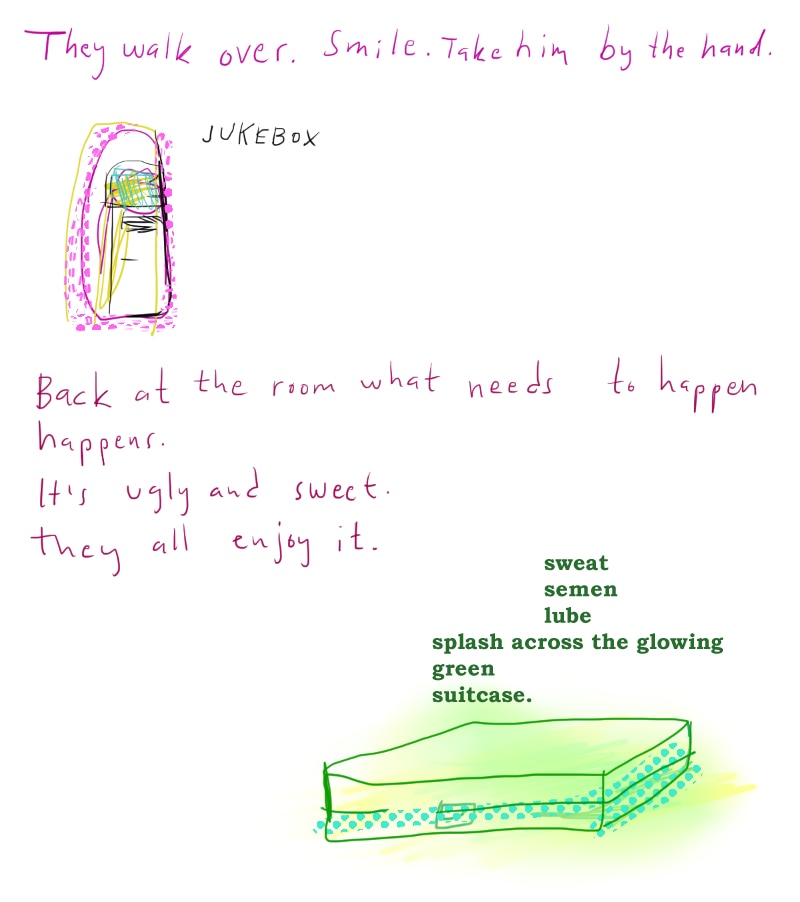 They walk over. Smile. Take him by the hand.
JUKEBOX
Back at the room what needs to happen
happens.
It's ugly and sweet.
they all enjoy it.
sweat
semen
lube
splash across the glowing
green
suitcase.